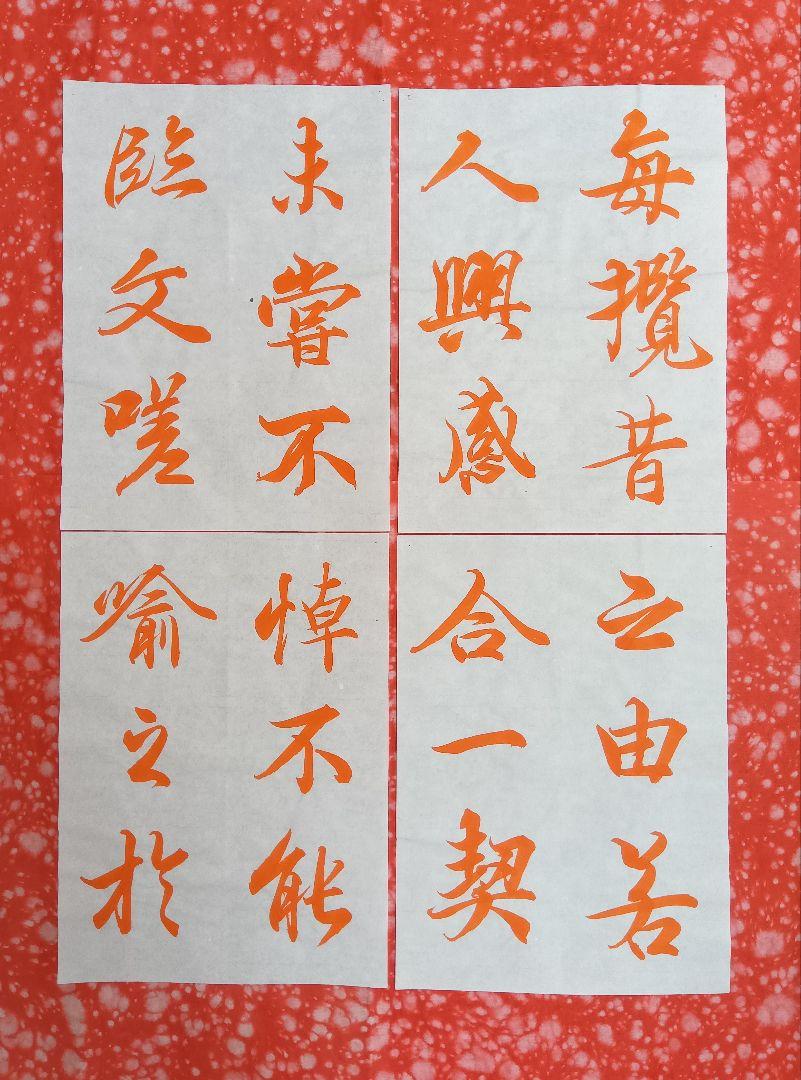 每攬昔
人興感
之由若
合一契
未嘗不
臨文嗟
悼不能
喻之於